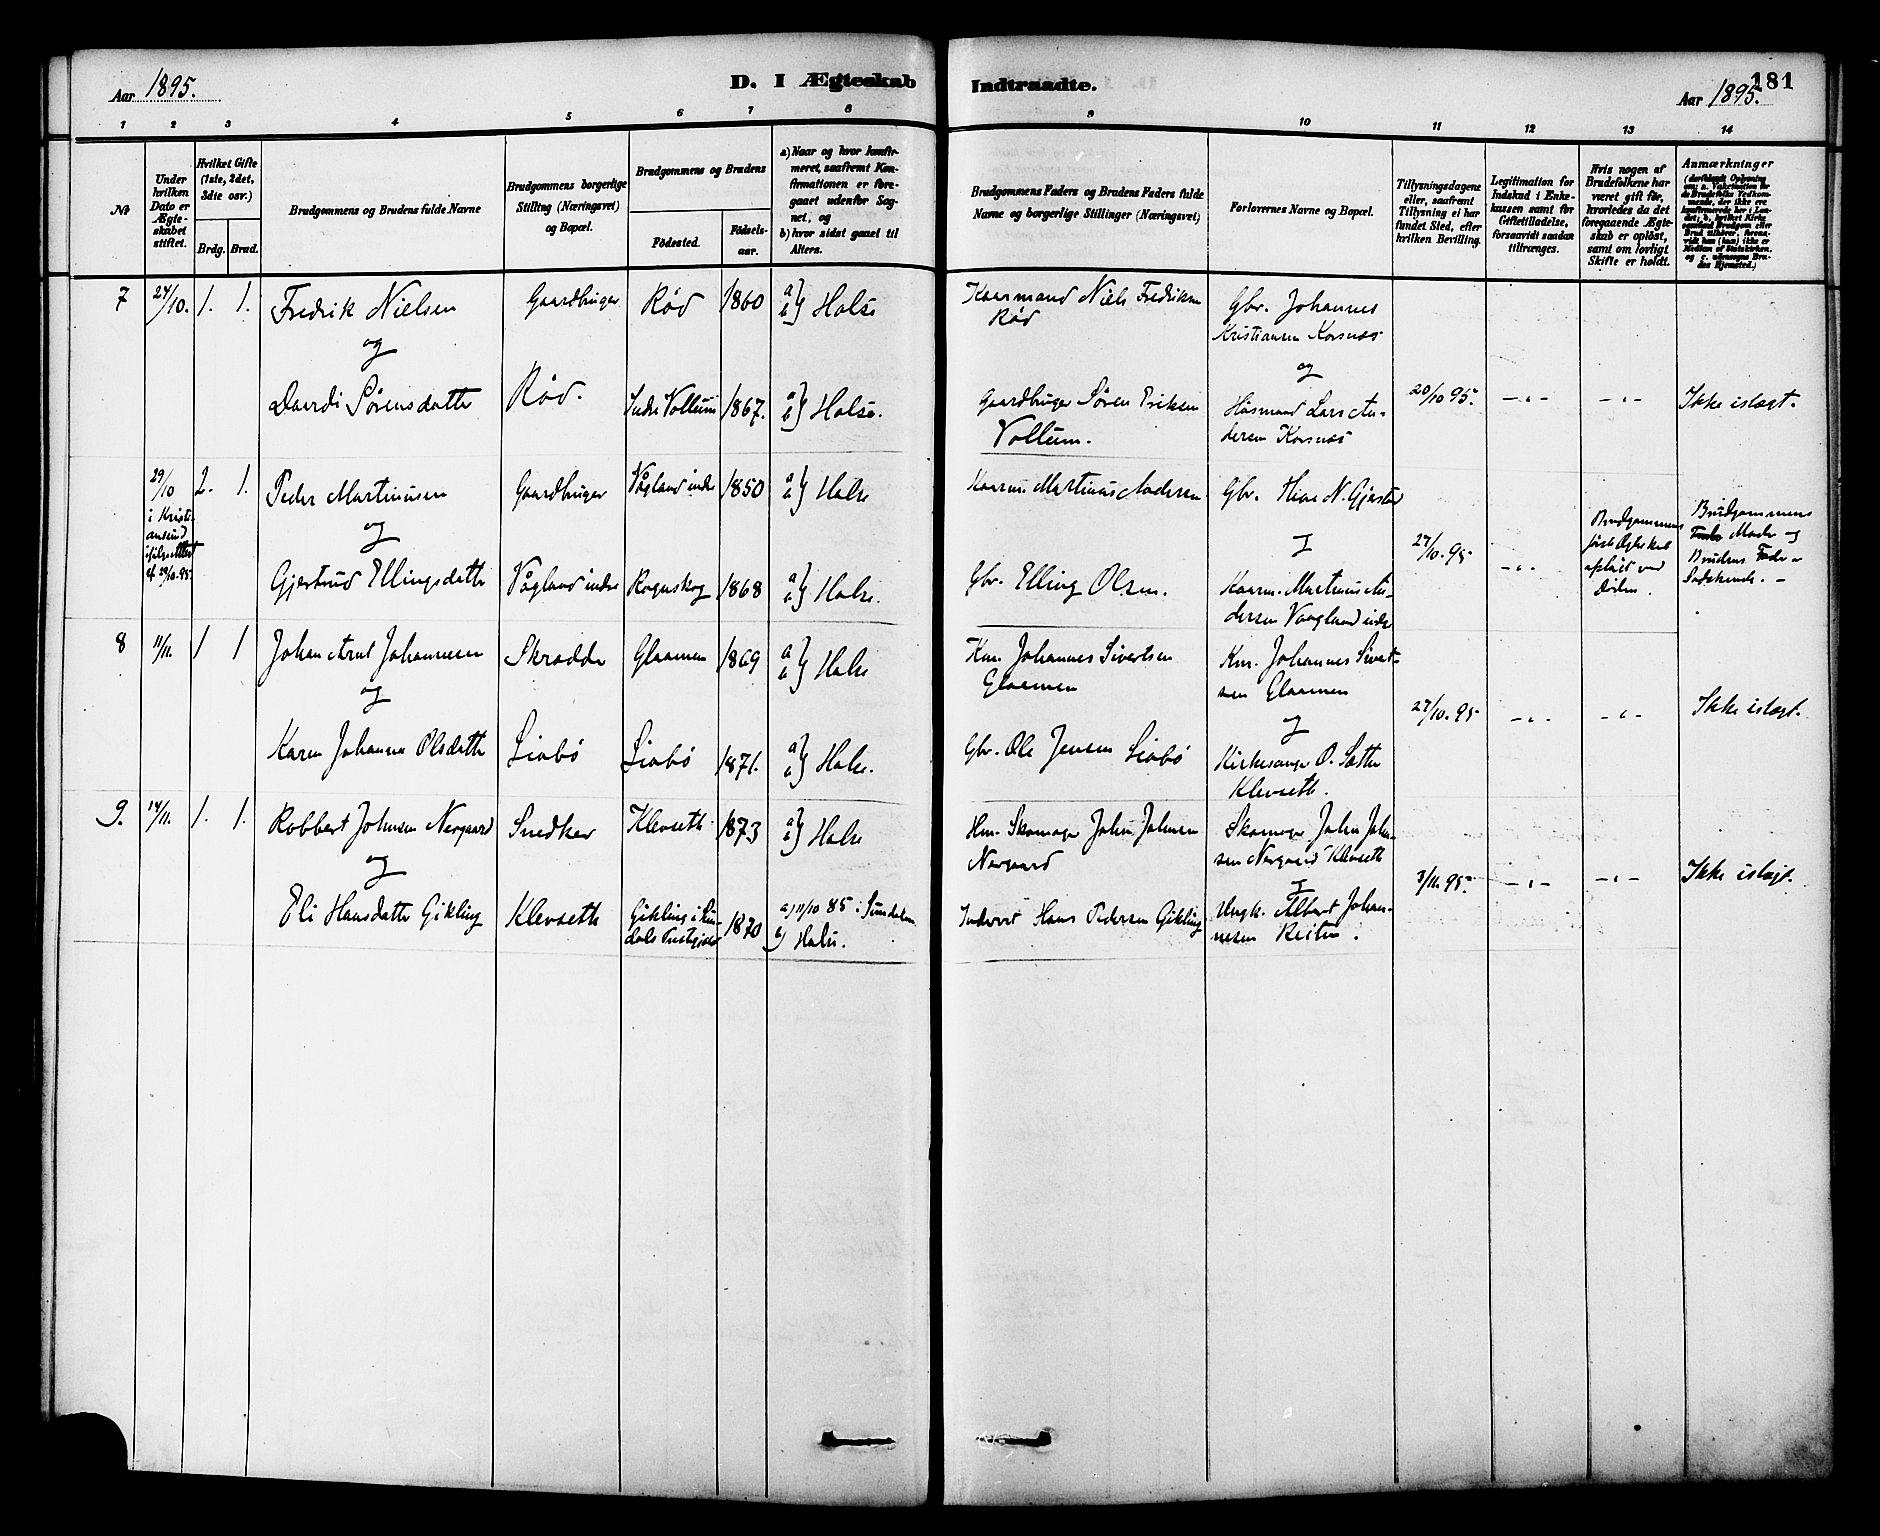 Aar 1895. D. I Ægteskab Indtraadte. Aar 1895. 181
1 2 3 4 5 6 7 8 9 10 11 12 13 14
№
Under hvilken Dato er Ægteskabet stiftet.
Hvilket Gifte (1ste, 2det, 3die osv.)
Brdg. Brud.
Brudgommens og Brudens fulde Navne
Brudgommens borgerlige Stilling (Næringsvei) og Bopæl.
Brudgommens og Brudens
Fødested. Fødselsaar.
a) Naar og hvor konfirmeret, saafremt Konfirmationen er foregaaet udenfor Sognet, og
b) hvor sidst gaaet til Alters.
Brudgommens Faders og Brudens Faders fulde Navne og borgerlige Stillinger (Næringsvei)
Forlovernes Navne og Bopæl.
Tillysningsdagene eller, saafremt Tillysning ei har fundet Sted, efter hvilken Bevilling.
Legitimation for Indskud i Enkekassen samt for Giftetilladelse, forsaavidt saadan tiltrænges.
Hvis nogen af Brudefolkene har været gift før, hvorledes da det foregaaende Ægteskab er opløst, samt om lovligt Skifte er holdt.
Anmærkninger
7 27/10. 1. 1. Fredrik Nielsen Gaardbruger Rød 1860 a) b) Halse Kaarmand Niels Fredriksen Rød Gbr. Johannes Kristiansen Korsnæs
og og
Sørensdatter Rød. Indre Vollum 1867. a) b) Halse. Gaardbruger Søren Eriksen Vollum. Husmand Lars Andersen Korsnæs 20/10 95. -„- -„- Ikke islægt.
29/10 i Kristiansund ifølge Attest af 29/10.95. 2. 1. Peder Martinusen Gaardbruger Vågland indre 1850 a) b) Halse Kaarm. Martinus Andersen Gbr. N. Gjersted
og
Gjertrud Ellingsdatter Vågland indre Rognskog 1868 a) b) Halse. Gbr. Elling Olsen. Kaarm. Martinus Andersen Vaagland indre 27/10.95 -„- Brudgommens første Ægteskab opløst ved Døden. Brudgommens Moder og Brudens Fader Sødskende. -
8 11/11. 1 1 Johan Arnt Johannesen Skrædder Glaamen 1869 a) b) Halse Km. Johannes Sivertsen Glaamen Km. Johannes Sivertsen Glaamen
og og
Karen Johanna Olsdatter Liabø Liabø 1871. a) b) Halse. Gbr. Ole Jensen Liabø Kirkesanger O. Sætter Klevseth. 27/10.95 -„- -„- Ikke islægt.
9. 14/11. 1. 1. Robbert Johnsen Norgaard Snedker Klevseth 1873 a) b) Halse Hm. Skomager John Johnsen Norgaard Skomager John Johnsen Norgaard Klevseth
og
Eli Hansdatter Gikling Klevseth Gikling i Sundals Prestgjeld 1870 a) 11/10 85 i Sundalen b) Halse. Inderst Hans Pedersen Gikling Ungk. Albert Johannesen Reiten. 3/11.95. -„- -„- Ikke islægt.